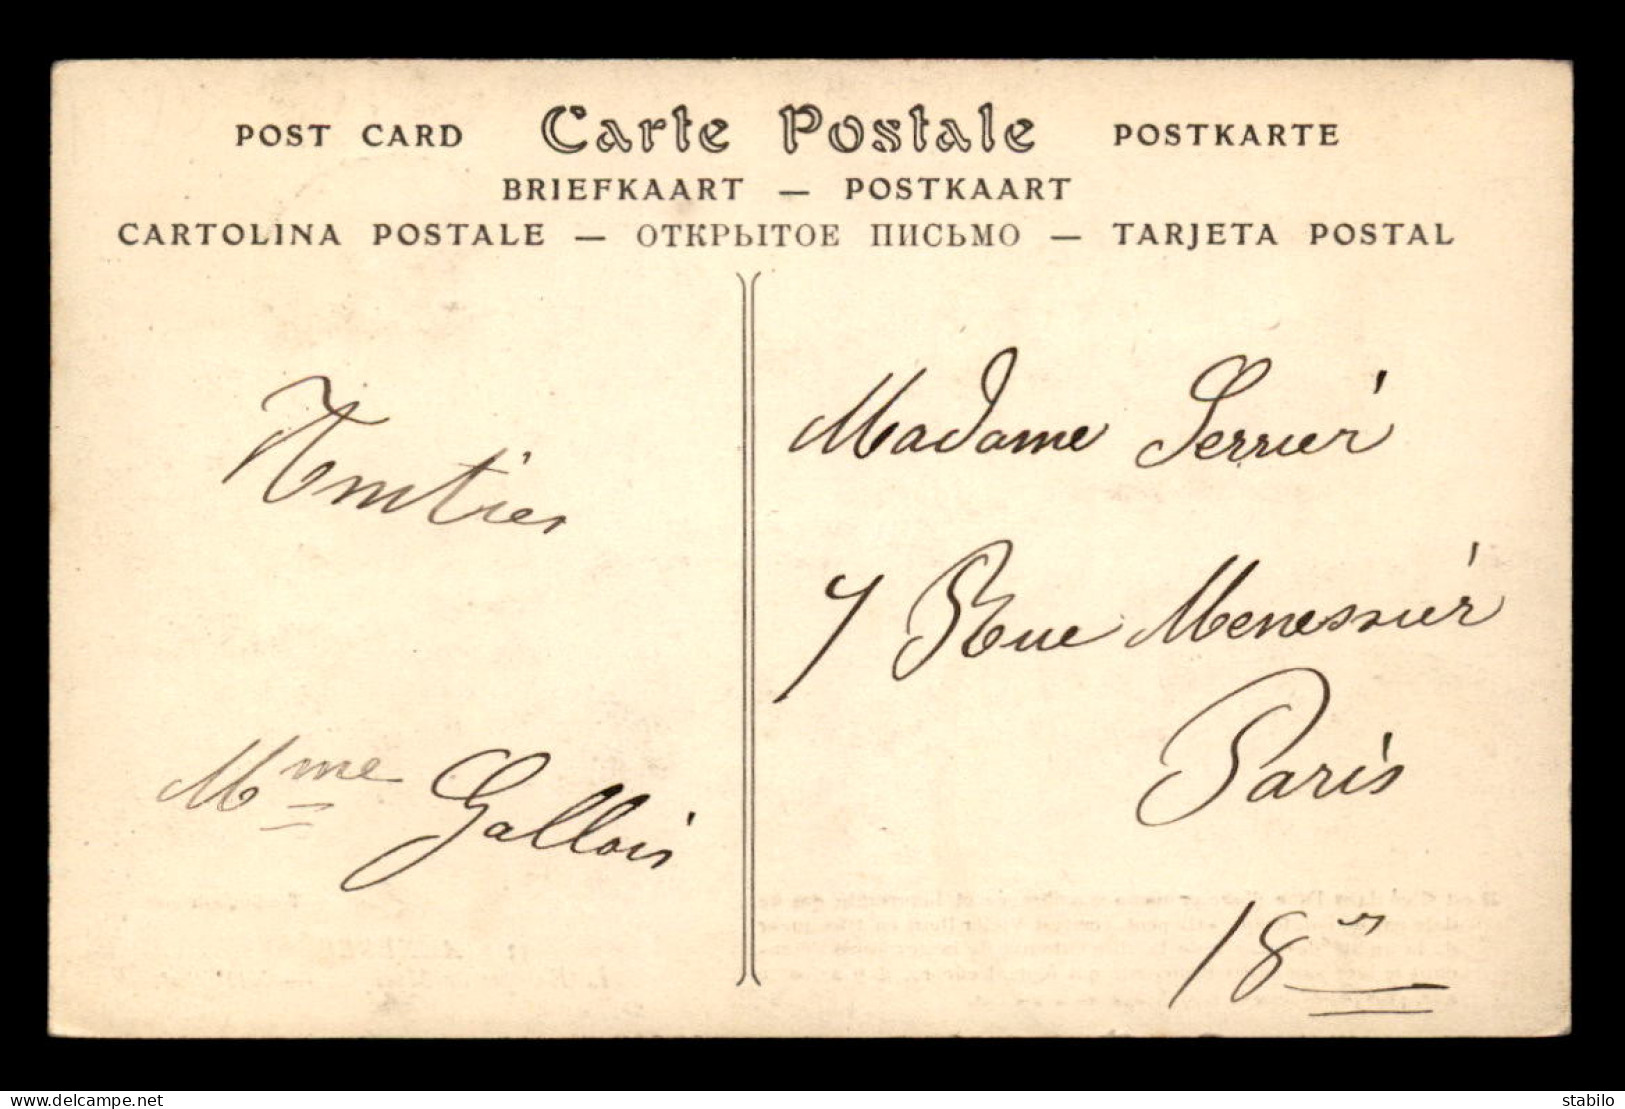 POST CARD Carte Postale POSTKARTE
BRIEFKAART — POSTKAART
CARTOLINA POSTALE — ОТКРЫТОЕ ПИСЬМО — TARJETA POSTAL
Amitiés
Mme Gallois
Madame Serrier
7 Rue Menessier
Paris
18e
delcampe.net
stabilo